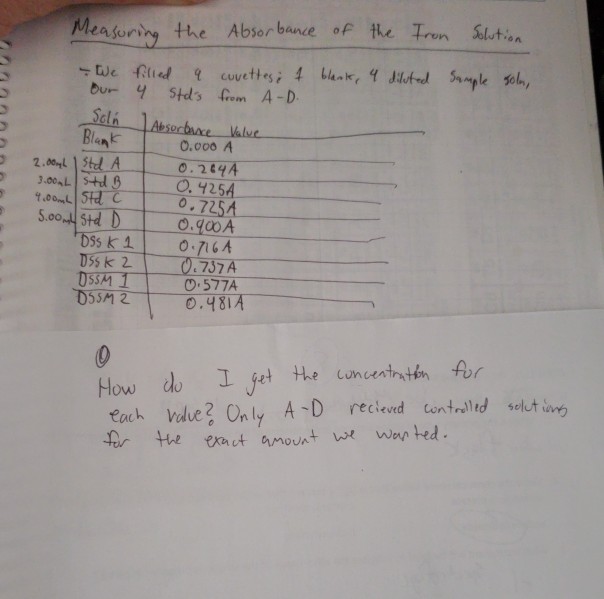 Measuring the Absorbance of the Iron Solution
- We filled 9 cuvettes; 1 blank, 4 diluted sample soln,
our 4 Std's from A-D.
Soln Absorbance Value
Blank 0.000 A
2.00mL Std A 0.264A
3.00mL Std B 0.425A
4.00mL Std C 0.725A
5.00mL Std D 0.900A
DSSK 1 0.716A
DSSK 2 0.737A
DSSM 1 0.577A
DSSM 2 0.481A
How do I get the concentration for
each value? Only A-D recieved controlled solutions
for the exact amount we wanted.